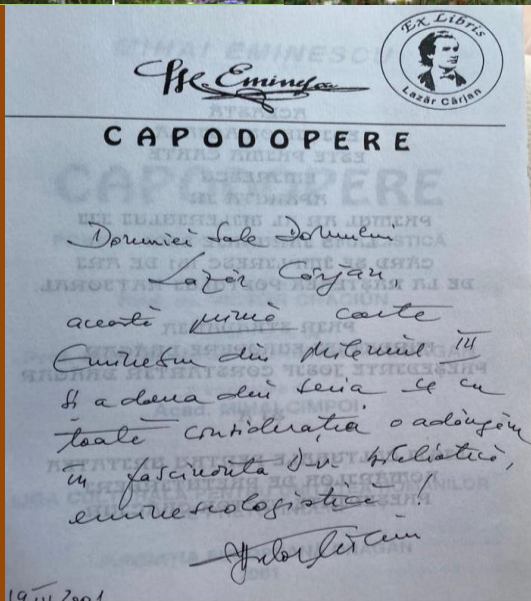 Ex Libris
Lazăr Cârjan
M. Eminescu
CAPODOPERE
Domniei Sale Domnului
Lazăr Cârjan,
această primă carte
Eminescu din mileniul III
și a doua din seria ce cu
toată considerația o adăugăm
în fascinanta D-v. bibliotecă,
eminescologistică!
19 III 2001